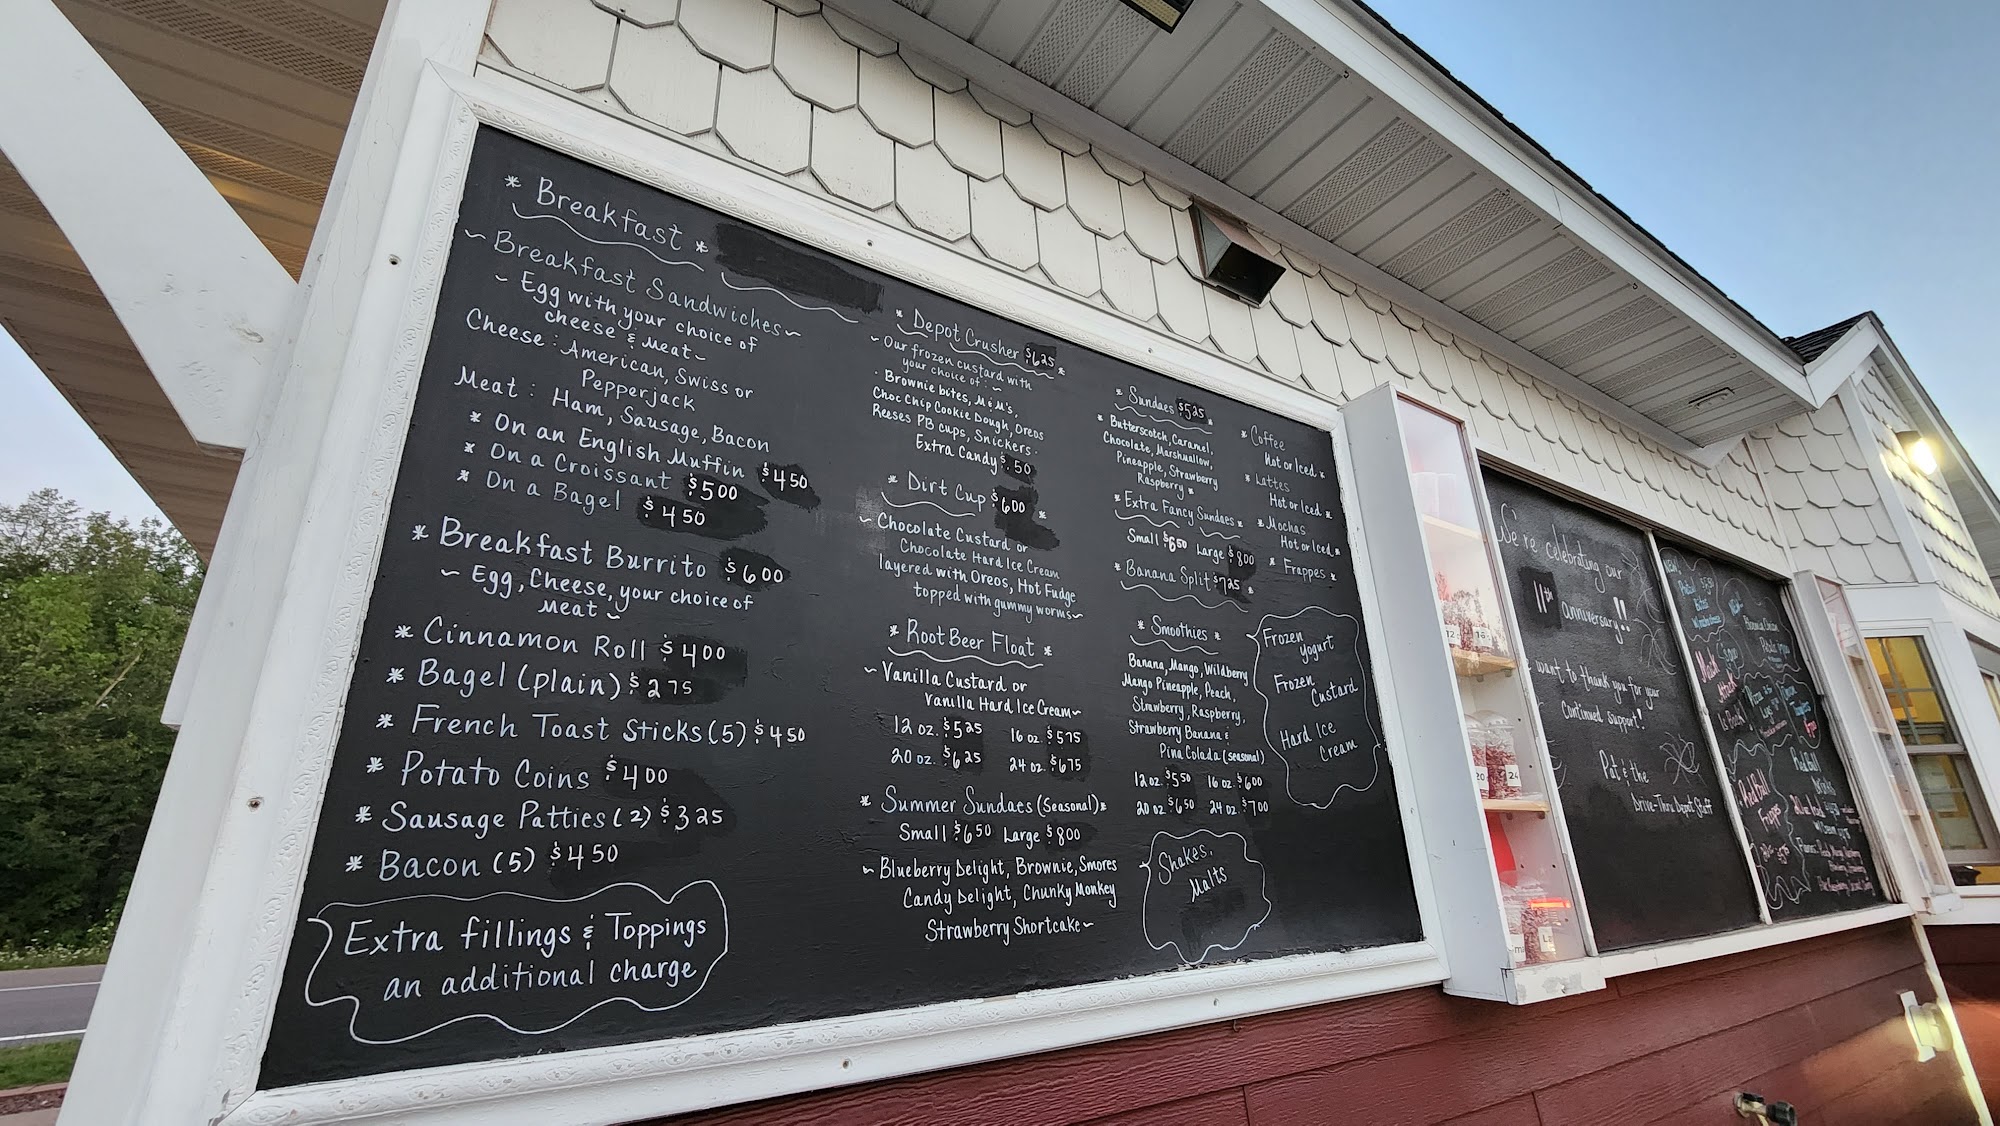 * Breakfast *
~ Breakfast Sandwiches ~
~ Egg with your choice of
cheese & Meat ~
Cheese: American, Swiss or
Pepperjack
Meat: Ham, Sausage, Bacon
* On an English Muffin $4.50
* On a Croissant $5.00
* On a Bagel $4.50
* Breakfast Burrito $6.00
~ Egg, Cheese, your choice of
Meat ~
* Cinnamon Roll $4.00
* Bagel (plain) $2.75
* French Toast Sticks (5) $4.50
* Potato Coins $4.00
* Sausage Patties (2) $3.25
* Bacon (5) $4.50
Extra fillings & Toppings
an additional charge
* Depot Crusher $6.25 *
~ Our frozen custard with
your choice of: ~
· Brownie bites, M&M's,
Choc Chip Cookie Dough, Oreos
Reeses PB cups, Snickers ·
Extra Candy $.50
* Dirt Cup $6.00 *
~ Chocolate Custard or
Chocolate Hard Ice Cream
layered with Oreos, Hot Fudge
topped with gummy worms ~
* Root Beer Float *
~ Vanilla Custard or
Vanilla Hard Ice Cream ~
12 oz. $5.25 16 oz. $5.75
20 oz. $6.25 24 oz. $6.75
* Summer Sundaes (Seasonal) *
Small $6.50 Large $8.00
~ Blueberry Delight, Brownie, Smores
Candy Delight, Chunky Monkey
Strawberry Shortcake ~
* Sundaes $5.25
* Butterscotch, Caramel,
Chocolate, Marshmallow,
Pineapple, Strawberry
Raspberry *
* Extra Fancy Sundaes *
Small $6.50 Large $8.00
* Banana Split $7.25 *
* Smoothies *
Banana, Mango, Wildberry
Mango Pineapple, Peach,
Strawberry, Raspberry,
Strawberry Banana &
Pina Colada (seasonal)
12 oz $5.50 16 oz $6.00
20 oz $6.50 24 oz $7.00
Shakes,
Malts
* Coffee
Hot or Iced *
* Lattes
Hot or Iced *
* Mochas
Hot or Iced *
* Frappes *
Frozen
Yogurt
Frozen
Custard
Hard Ice
Cream
We're celebrating our
11th
anniversary!!
want to thank you for your
continued support!
Pat & the
Drive-Thru Depot Staff
12
16
20
24
NEW!
Pretzel
Bites
Red Bull
Frappe
Red Bull